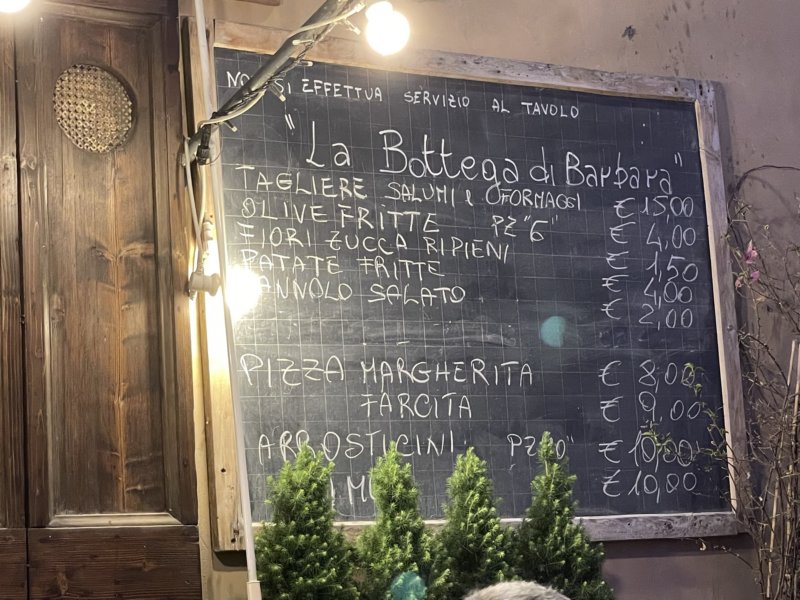 SI EFFETTUA SERVIZIO AL TAVOLO
"La Bottega di Barbara"
TAGLIERE SALUMI e FORMAGGI € 15,00
OLIVE FRITTE PZ "6" € 4,00
FIORI ZUCCA RIPIENI € 1,50
PATATE FRITTE € 4,00
ANNOLO SALATO € 2,00
PIZZA MARGHERITA € 8,00
FARCITA € 9,00
ARROSTICINI PZ € 10,00
€ 10,00